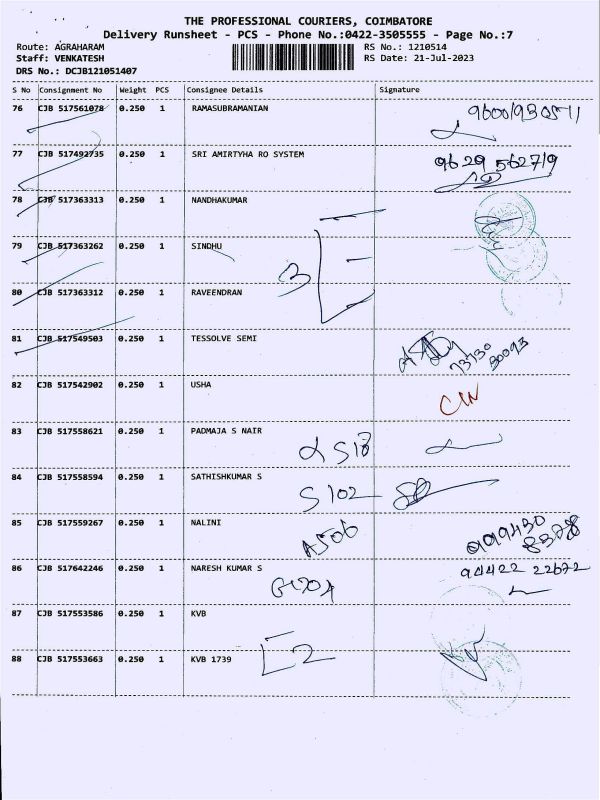 THE PROFESSIONAL COURIERS, COIMBATORE
Delivery Runsheet - PCS - Phone No.:0422-3505555 - Page No.:7
Route: AGRAHARAM RS No.: 1210514
Staff: VENKATESH RS Date: 21-Jul-2023
DRS No.: DCJB121051407
S No Consignment No Weight PCS Consignee Details Signature
76 CJB 517561078 0.250 1 RAMASUBRAMANIAN
77 CJB 517492735 0.250 1 SRI AMIRTYHA RO SYSTEM 9629 562719
78 CJB 517363313 0.250 1 NANDHAKUMAR
79 CJB 517363262 0.250 1 SINDHU
3
80 CJB 517363312 0.250 1 RAVEENDRAN
81 CJB 517549503 0.250 1 TESSOLVE SEMI
82 CJB 517542902 0.250 1 USHA
83 CJB 517558621 0.250 1 PADMAJA S NAIR
84 CJB 517558594 0.250 1 SATHISHKUMAR S
S102
85 CJB 517559267 0.250 1 NALINI
A506
86 CJB 517642246 0.250 1 NARESH KUMAR S 94422 22672
87 CJB 517553586 0.250 1 KVB
88 CJB 517553663 0.250 1 KVB 1739
2